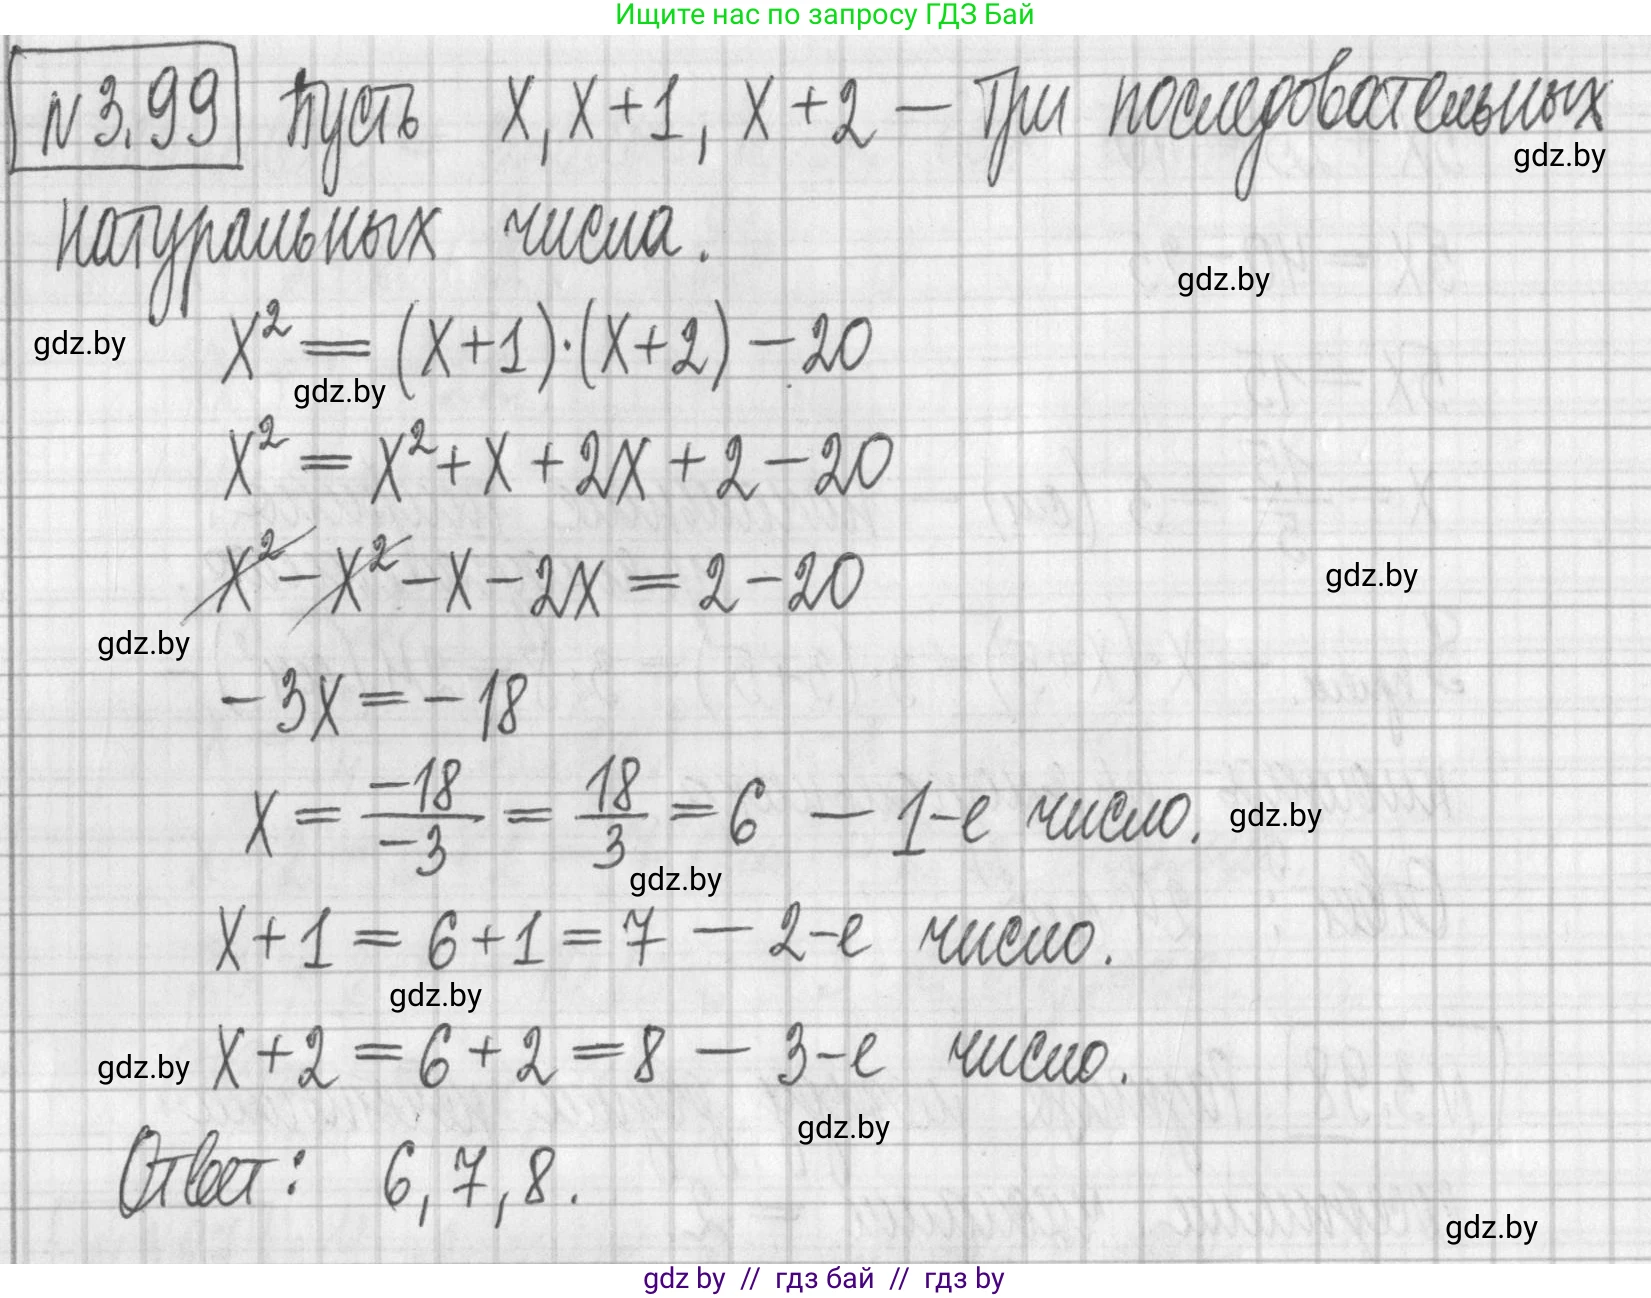 Ищите нас по запросу ГДЗ Бай
N 3.99 Пусть x, x+1, x+2 — три последовательных
gdz.by
натуральных числа.
gdz.by
x² = (x+1)·(x+2) − 20
gdz.by
gdz.by
x² = x² + x + 2x + 2 − 20
x² − x² − x − 2x = 2 − 20
gdz.by
gdz.by
−3x = −18
x = −18/−3 = 18/3 = 6 — 1-е число.
gdz.by
gdz.by
x+1 = 6+1 = 7 — 2-е число.
gdz.by
x+2 = 6+2 = 8 — 3-е число.
gdz.by
gdz.by
Ответ: 6, 7, 8.
gdz.by
gdz by // гдз бай // гдз by